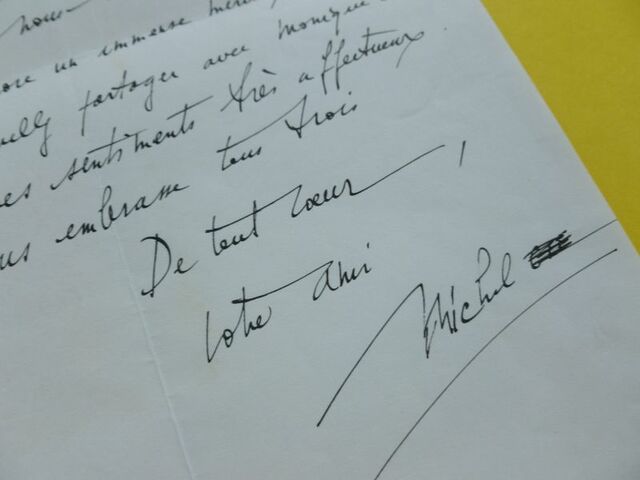 nous
un immense merci
partager avec Monique
sentiments très affectueux.
embrasse tous trois
De tout cœur,
Votre ami
Michel